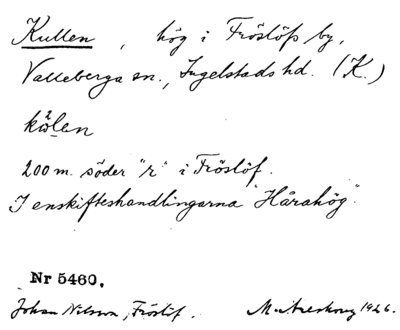 Kullen, hög i Fröslöfs by,
Valleberga sn., Ingelstads hd. (K.)
200 m. söder "r" i Fröslöf.
I enskifteshandlingarna "Hårahög".
Nr 5460.
Johan Nilsson, Fröslöf. M. Areskoug 1926.